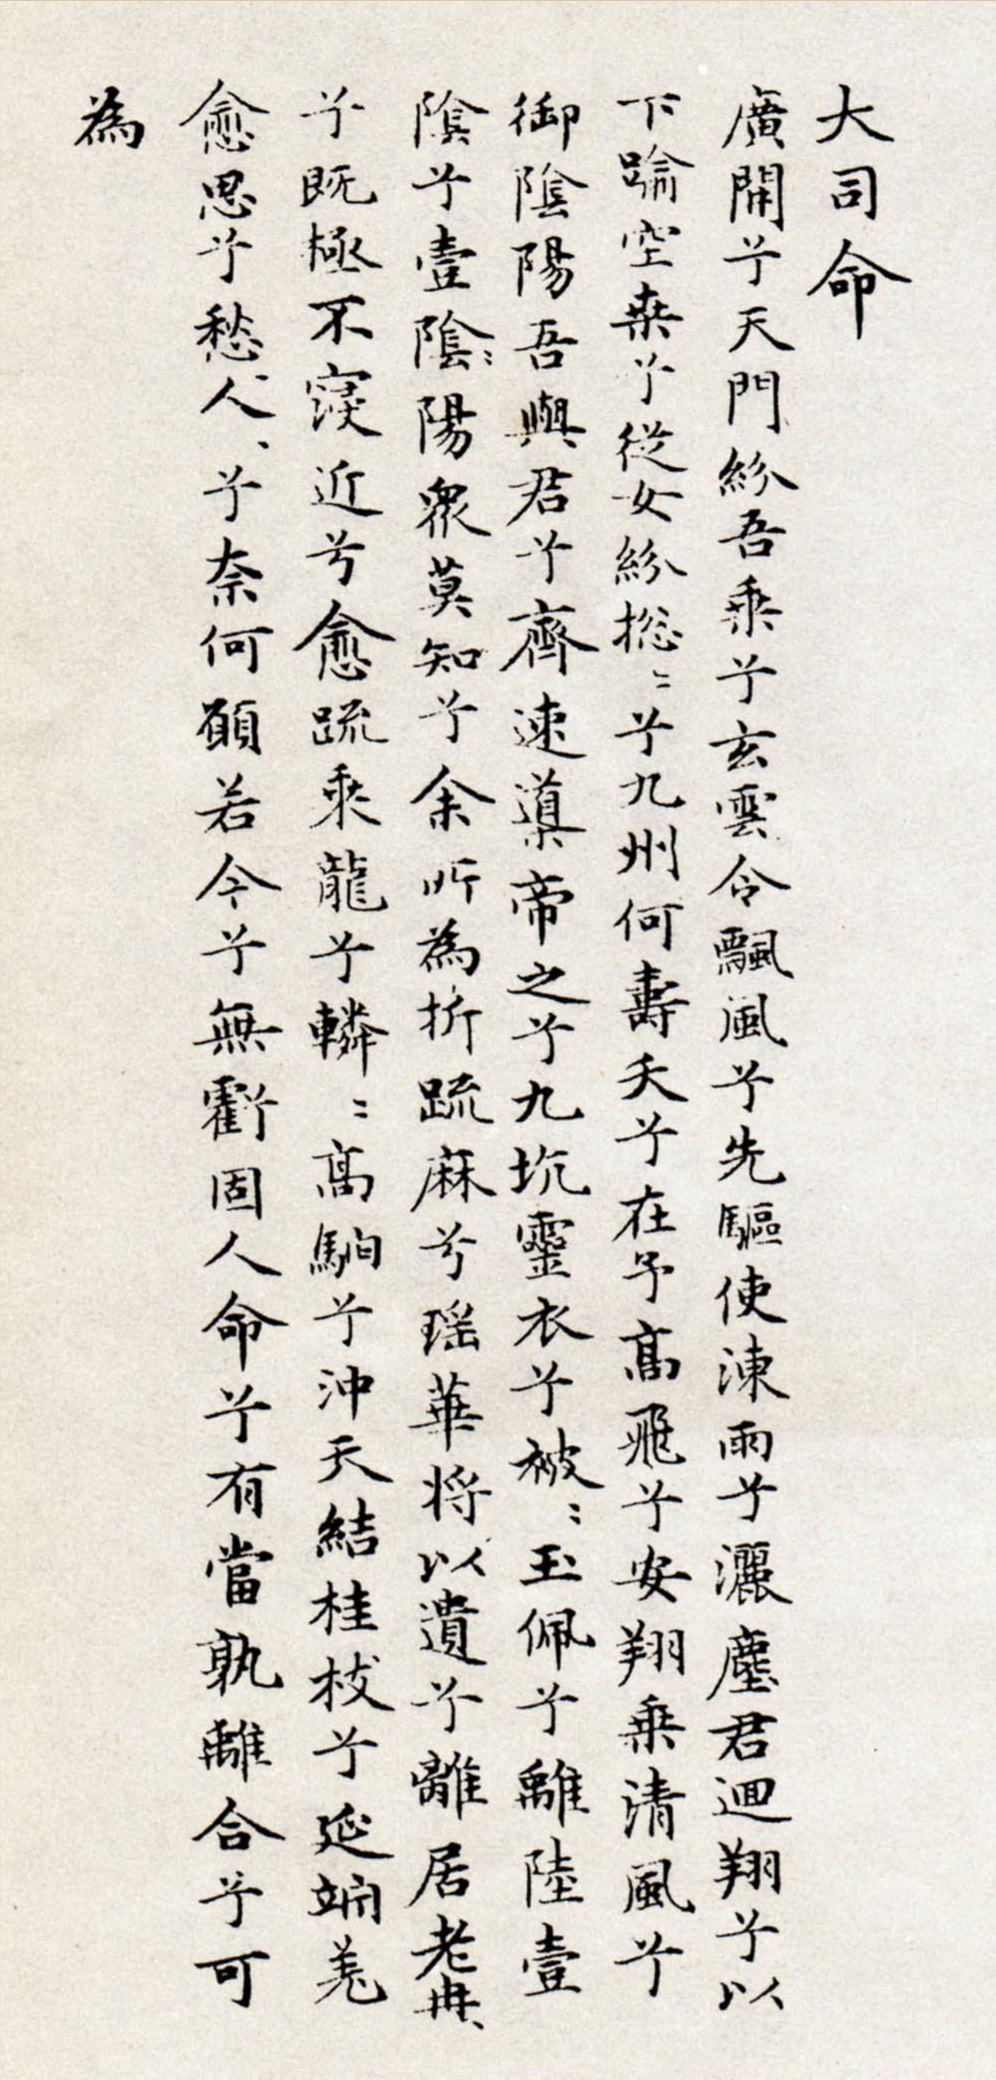 大司命
廣開兮天門紛吾乘兮玄雲令飄風兮先驅使涷雨兮灑塵君迴翔兮以
下踰空桒兮從女紛揔〻兮九州何壽夭兮在予高飛兮安翔乘清風兮
御陰陽吾與君兮齊速導帝之兮九坑靈衣兮被〻玉佩兮離陸壹
陰兮壹陰〻陽衆莫知兮余所為折疏麻兮瑶華将以遺兮離居老冉〻
兮既極不寖近兮愈疏乘龍兮轔〻高駒兮沖天結桂枝兮延竚羗
愈思兮愁人〻兮奈何願若今兮無虧固人命兮有當孰離合兮可
為